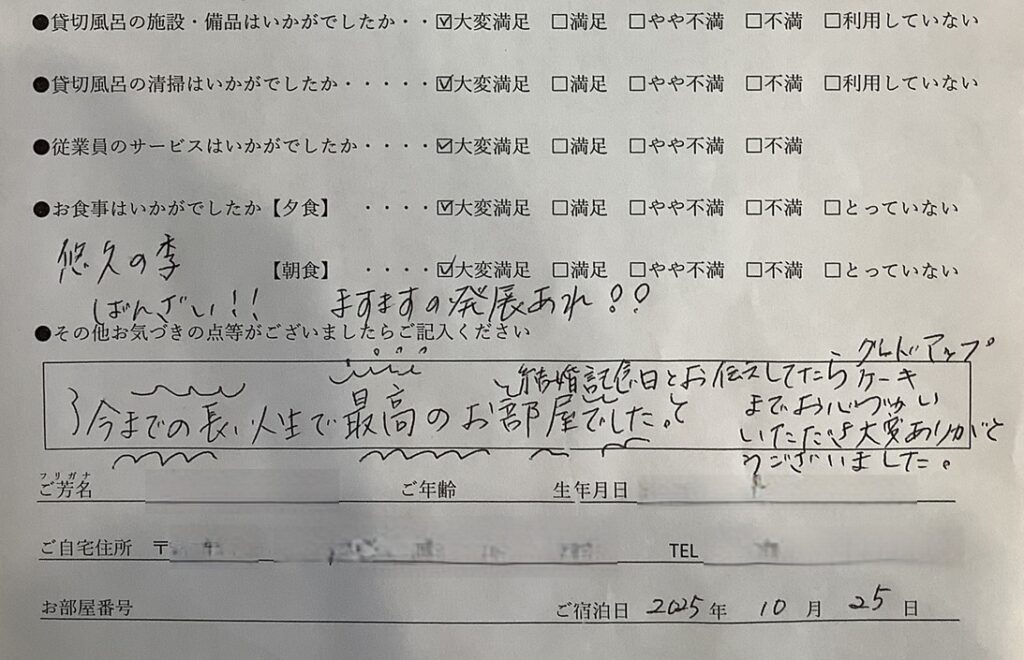 ●貸切風呂の施設・備品はいかがでしたか・・☑大変満足 □満足 □やや不満 □不満 □利用していない
●貸切風呂の清掃はいかがでしたか・・・・・☑大変満足 □満足 □やや不満 □不満 □利用していない
●従業員のサービスはいかがでしたか・・・・☑大変満足 □満足 □やや不満 □不満
●お食事はいかがでしたか【夕食】 ・・・・☑大変満足 □満足 □やや不満 □不満 □とっていない
悠久の季
【朝食】 ・・・・☑大変満足 □満足 □やや不満 □不満 □とっていない
ばんざい!! ますますの発展あれ!!
●その他お気づきの点等がございましたらご記入ください
今までの長い人生で最高のお部屋でした。
結婚記念日とお伝えしてたら
グレードアップ
ケーキ
までお心づかい
いただき大変ありがと
うございました。
フリガナ
ご芳名 ご年齢 生年月日
ご自宅住所 〒 TEL
お部屋番号 ご宿泊日 2025年 10月 25日